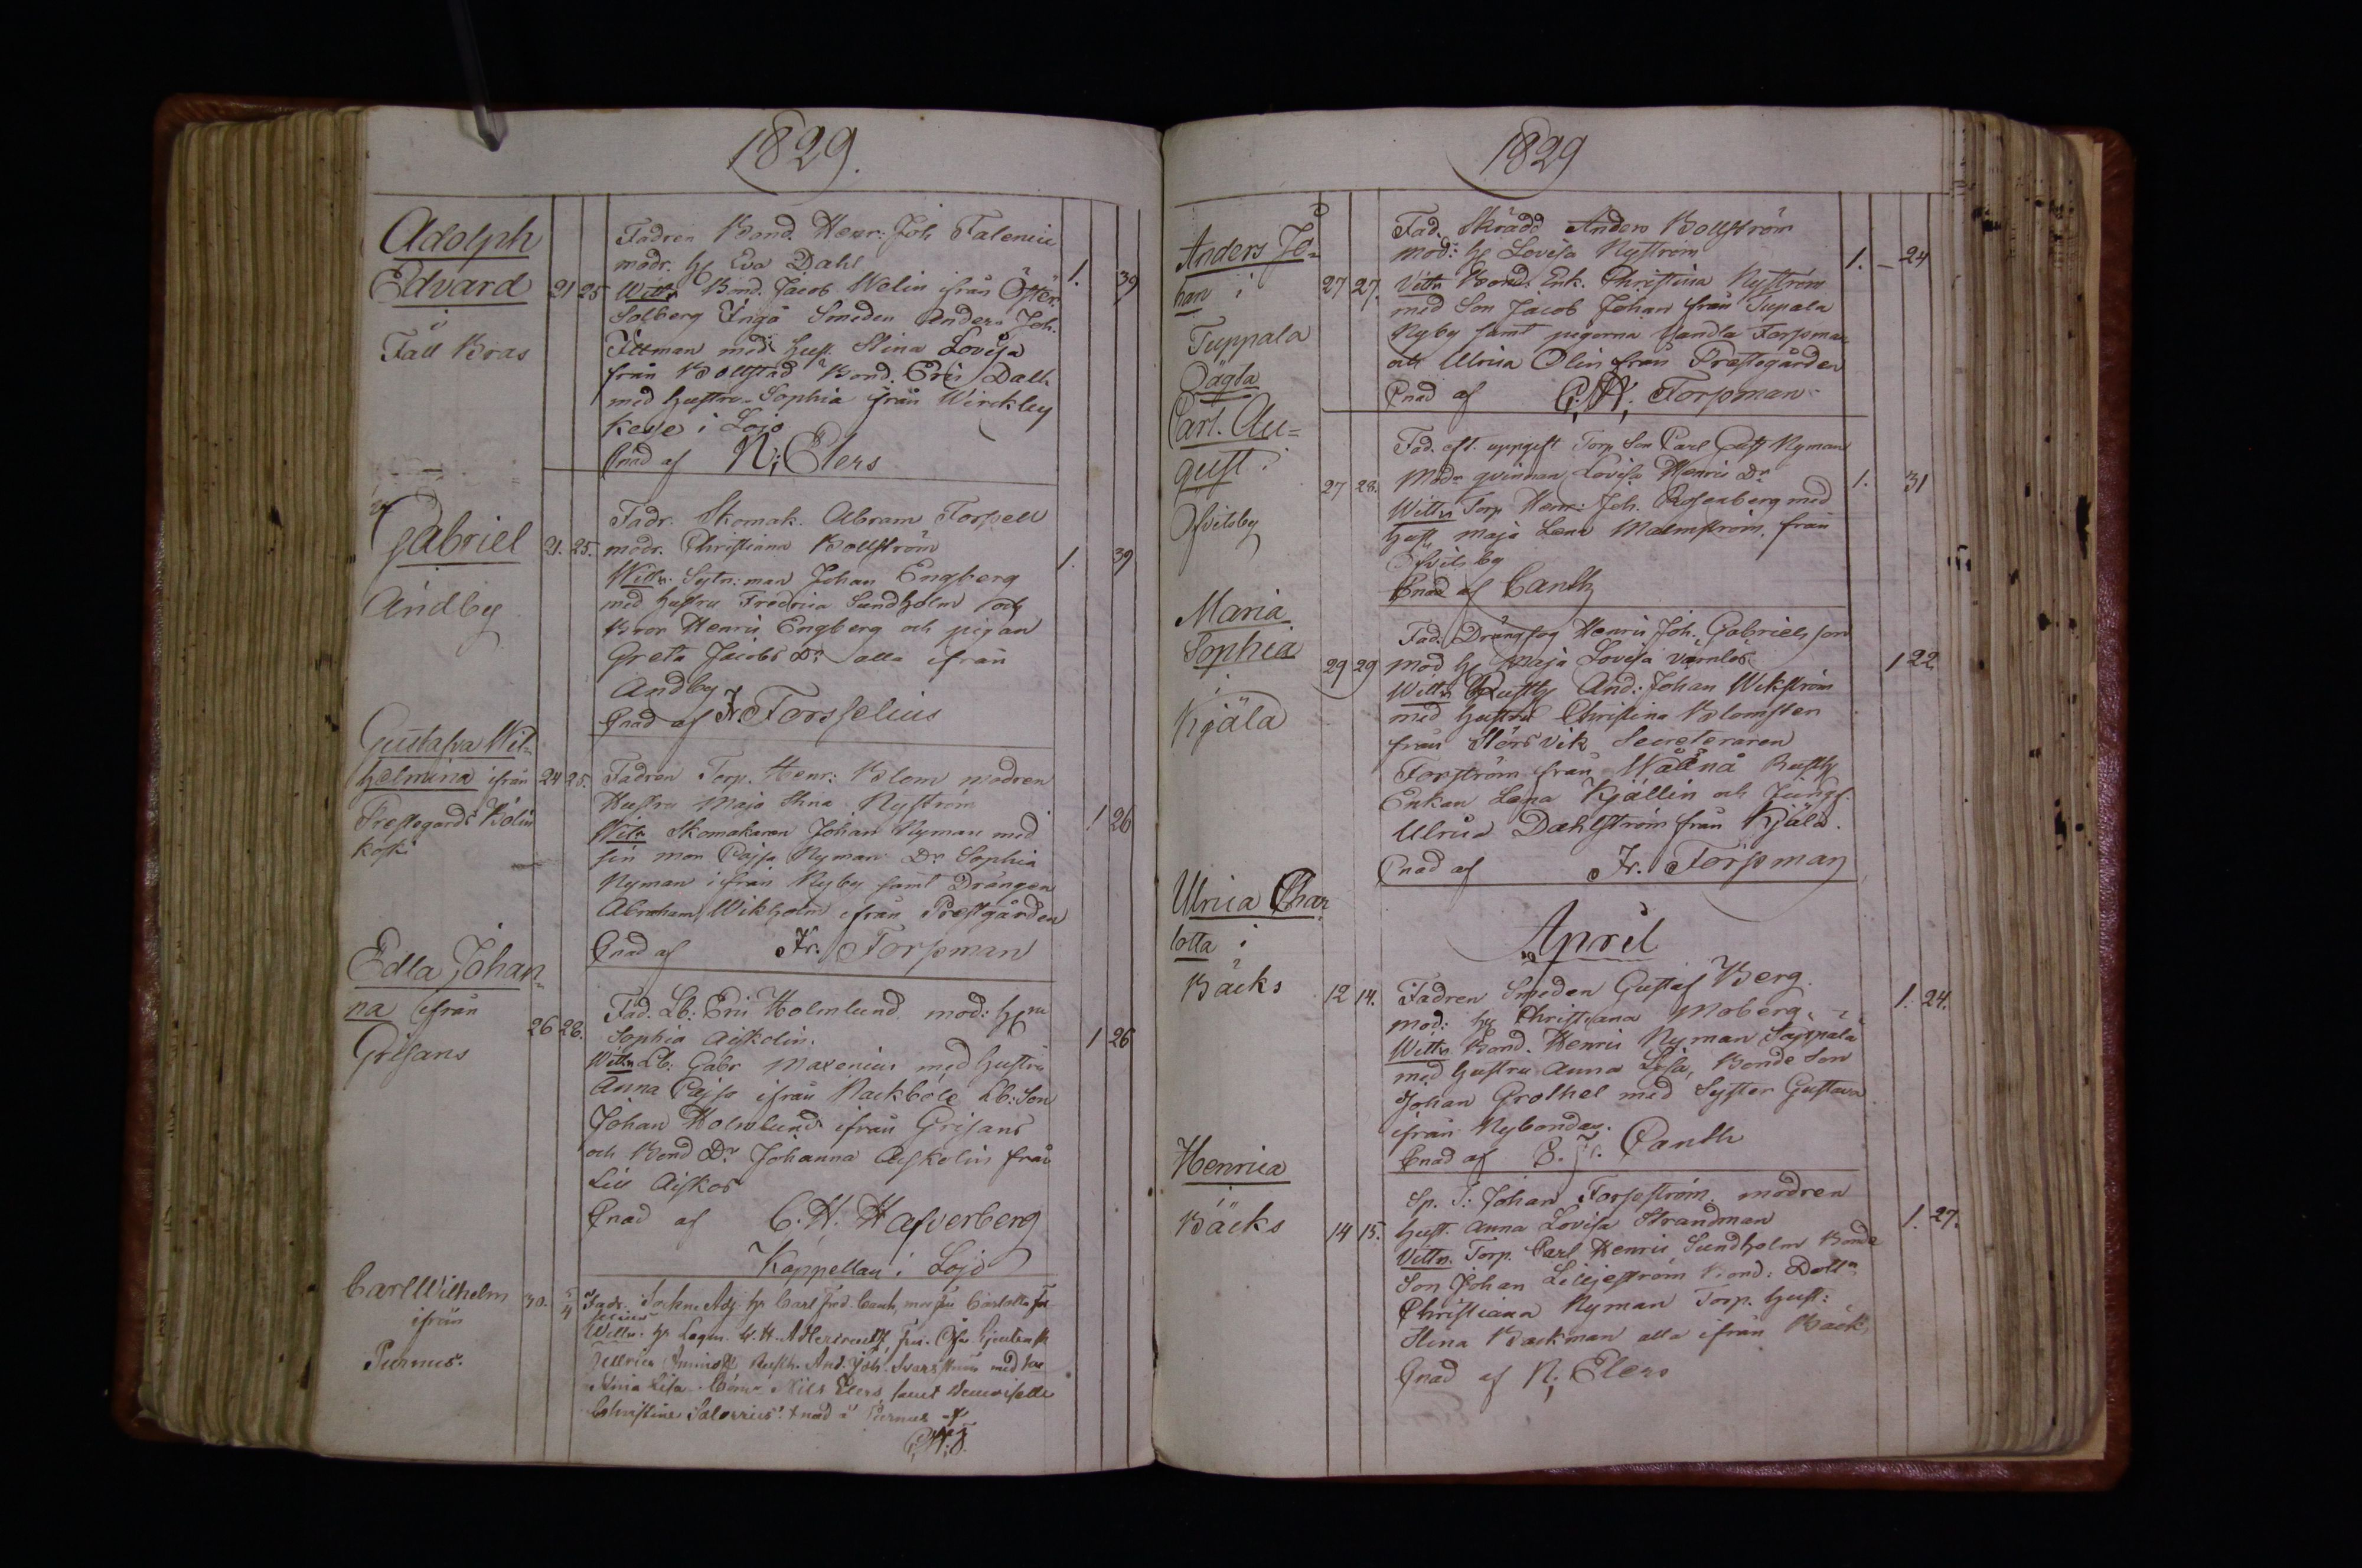 1829.
Adolph
Edvard
i
Fall Bras
21 25
Fadren Bond. Henr: Joh Falenius
modr. H Eva Dahl
Wittn Bond. Jacob Welin ifrån Öster
Solberg Ingå Smeden Anders Joh.
Ittman med Hust. Stina Lovisa
från Bollstad Bond. Eric Dahl
med hustru Sophia från Wirckby
i Lojo
Cnad af N; Elers
1. 39
Gabriel
i
Andby
21. 25.
Fadr. Skomak. Abram Forsell
modr. Christiana Bollström
Wittn. Sytn:man Johan Engberg
med hustru Fredrica Sundholm och
Bror Henric Engberg och pigan
Greta Jacobs Dr alla ifrån
Andby
Cnad af Fr. Forsselius
1. 39
Gustafva Wil-
helmina ifrån
Prestegårds Böle
Koski
24 25.
Fadren Torp. Henr: Blom modren
Hustru Maja Stina Nyström
Witn Skomakaren Johan Nyman med
sin mor Cajsa Nyman Dr Sophia
Nyman ifrån Nyby samt Drängen
Abraham Wikholm ifrån Prestgården
Cnad af Fr. Forsman
1 26
Edla Johan-
na ifrån
Grisans
26 28.
Fad. Lb: Eric Holmlund mod: H
Sophia Aiskolin.
Wittn Lb. Gabr Maxenius med hustru
Anna Cajsa ifrån Backböle Lb:Son
Johan Holmlund ifrån Grisans
och Bond Dr Johanna Aiskolin från
Lill Aiskos
Cnad af C. H. Hafverberg
Kappellan i Lojo
1 26
Carl Wilhelm
ifrån
Purnus.
30. 5/4
Fadr. Sockne Adj. Hr Carl Fred. Canth, mor fru Carlotta
Wittn. Hr Lagm.
Rusth. And. Joh.
Anna Lisa Nils Elers samt Demoiselle
Christine Cnad i Purnus af
C;H;F.
1829
Anders Jo-
han i
Tuppala
Oägta
27 27.
Fad. Skrädd Anders Bollström
mod: H Lovisa Nyström
Vittn Bond. Enk. Christina Nyström
med Son Jacob Johan från Tupala
Nyby samt pigorna Vendla Forsman
och Ulrica Olin från Prestegården
Cnad af C;H; Forsman
1. – 24
Carl. Au=
gust i
Öfvitsby
27 28.
Fad. eft. uppgift Torp Son Carl Gust Nyman
Modr qvinnan Lovisa Henrics Dr
Wittn Torp Henr: Joh. Rosenberg med
Hust. Maja Lena Malmström. från
Öfvitsby
Cnad af Canth
1. 31
Maria
Sophia
i
Kjäla
29 29
Fad. Dräng Henric Joh. Gabrielsson
mod H Maja Lovisa
Wittn Rusth And: Johan Wikström
med hustru Christina Blomster
från Störsvik Secreteraren
Forström från Rusth
Enkan Lena Kjällin och Jungf.
Ulrica Dahlström från Kjäla.
Cnad af Fr. Forsman
1 22
April
Ulrica Char
lotta i
Bäcks
12 14.
Fadren Smeden Gustaf Berg.
mod: H Christiana Moberg.
Wittn Bond. Henric Nyman
med hustru Anna Lisa, Bonde Son
Johan Grothel med Syster Gustava
ifrån Nybondas.
Cnad af C. F. Canth
1. 24.
Henrica
i
Bäcks
14 15.
Sp. T: Johan Forsström. modren
hust. Anna Lovisa Strandman
Vittn. Torp. Carl Henric Sundholm Bonde
Son Johan Liljeström Bond: Dottr
Christiana Nyman Torp. hust:
Stina Backman alla ifrån Bäck
Cnad af N; Elers
1. 27.